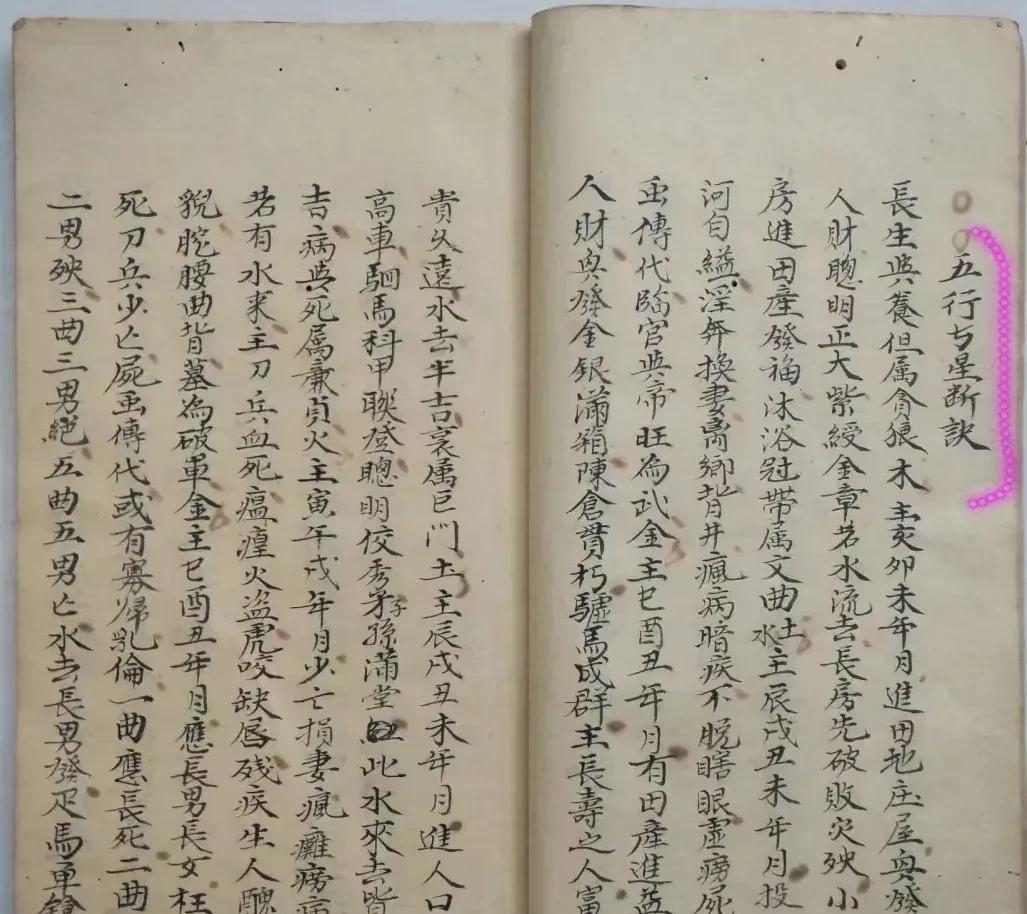 五行七星断訣
長生與養但属貪狼木主亥卯未年月進田地庄屋與發
人財聰明正大紫綬金章若水流去長房先破敗災殃小
房進田產發福沐浴冠帶属文曲水土主辰戌丑未年月投
河自縊淫奔換妻离鄉背井瘋病暗疾不脫瞎眼虛癆死
虽傳代臨官與帝旺為武金主巳酉丑年月有田產進益
人財與發金銀滿箱陳倉貫朽驢馬成群主長壽之人富
貴久遠水去半吉衰属巨门土主辰戌丑未年月進人口
高車駟馬科甲聯登聰明俊秀子孫滿堂此水來去皆
吉病與死属廉貞火主寅午戌年月少亡損妻瘋癱癆病
若有水來主刀兵血死瘟瘟火盜虎咬缺唇殘疾生人醜
貌駝腰曲背墓為破軍金主巳酉丑年月應長男長女枉
死刀兵少亡屍虽傳代或有寡婦乱倫一曲應長死二曲
二男殃三曲三男絕五曲五男亡水去長男發疋馬單鎗